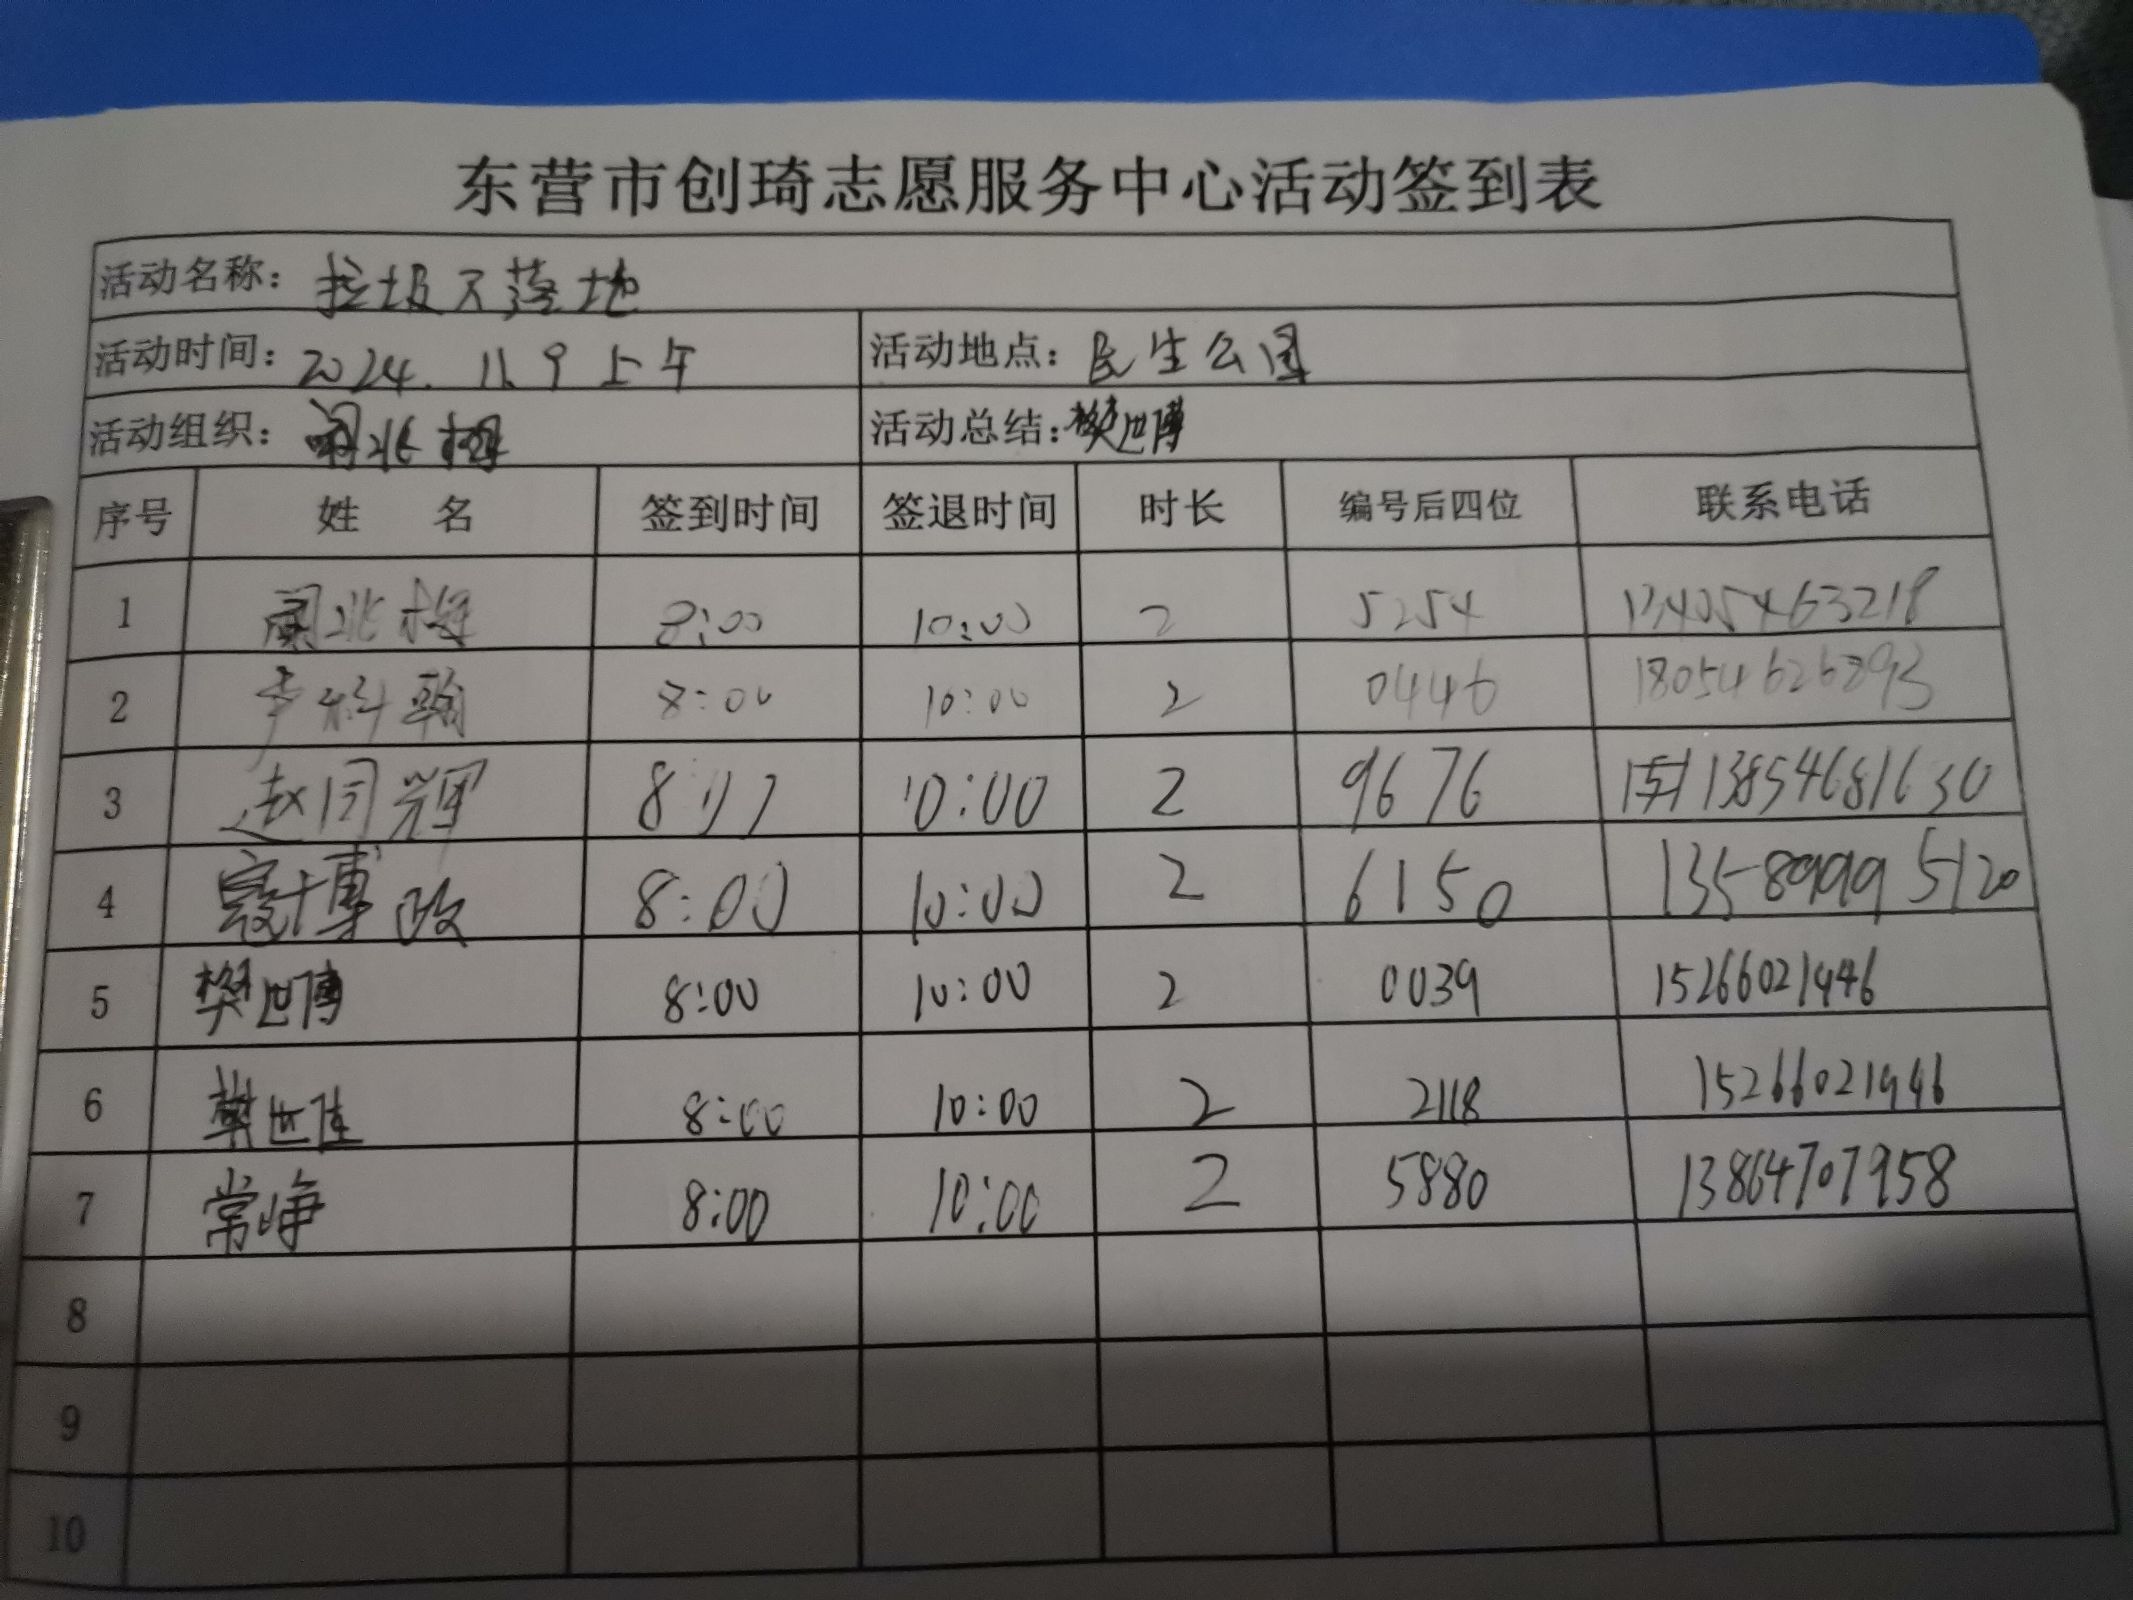 东营市创琦志愿服务中心活动签到表
活动名称：垃圾不落地
活动时间：2024.11.9上午 活动地点：民生公园
活动组织： 活动总结：樊世博
序号 姓名 签到时间 签退时间 时长 编号后四位 联系电话
1 8:00 10:00 2 5254 13405463218
2 8:00 10:00 2 0446 18054626893
3 赵同辉 10:00 2 9676 13854681630
4 寇博政 8:00 10:00 2 6150 13589995120
5 樊世博 8:00 10:00 2 0039 15266021946
6 樊世佳 8:00 10:00 2 2118 15266021946
7 常峥 8:00 10:00 2 5880 13864707958
8
9
10